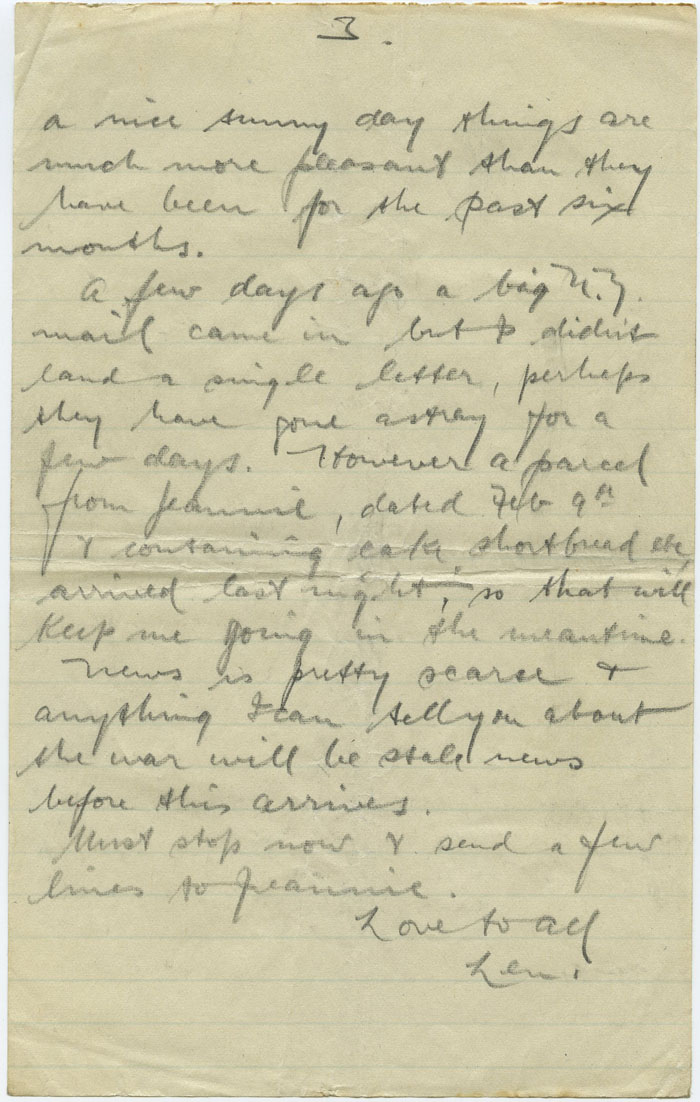 3.
a nice sunny day things are
much more pleasant than they
have been for the past six
months.
A few days ago a big N.Z.
mail came in but I didn't
land a single letter, perhaps
they have gone astray for a
few days. However a parcel
from Jeannie, dated Feb 9th
& containing cake shortbread etc,
arrived last night, so that will
keep me going in the meantime.
News is pretty scarce &
anything I can tell you about
the war will be stale news
before this arrives.
Must stop now & send a few
lines to Jeannie.
Love to all
Len.